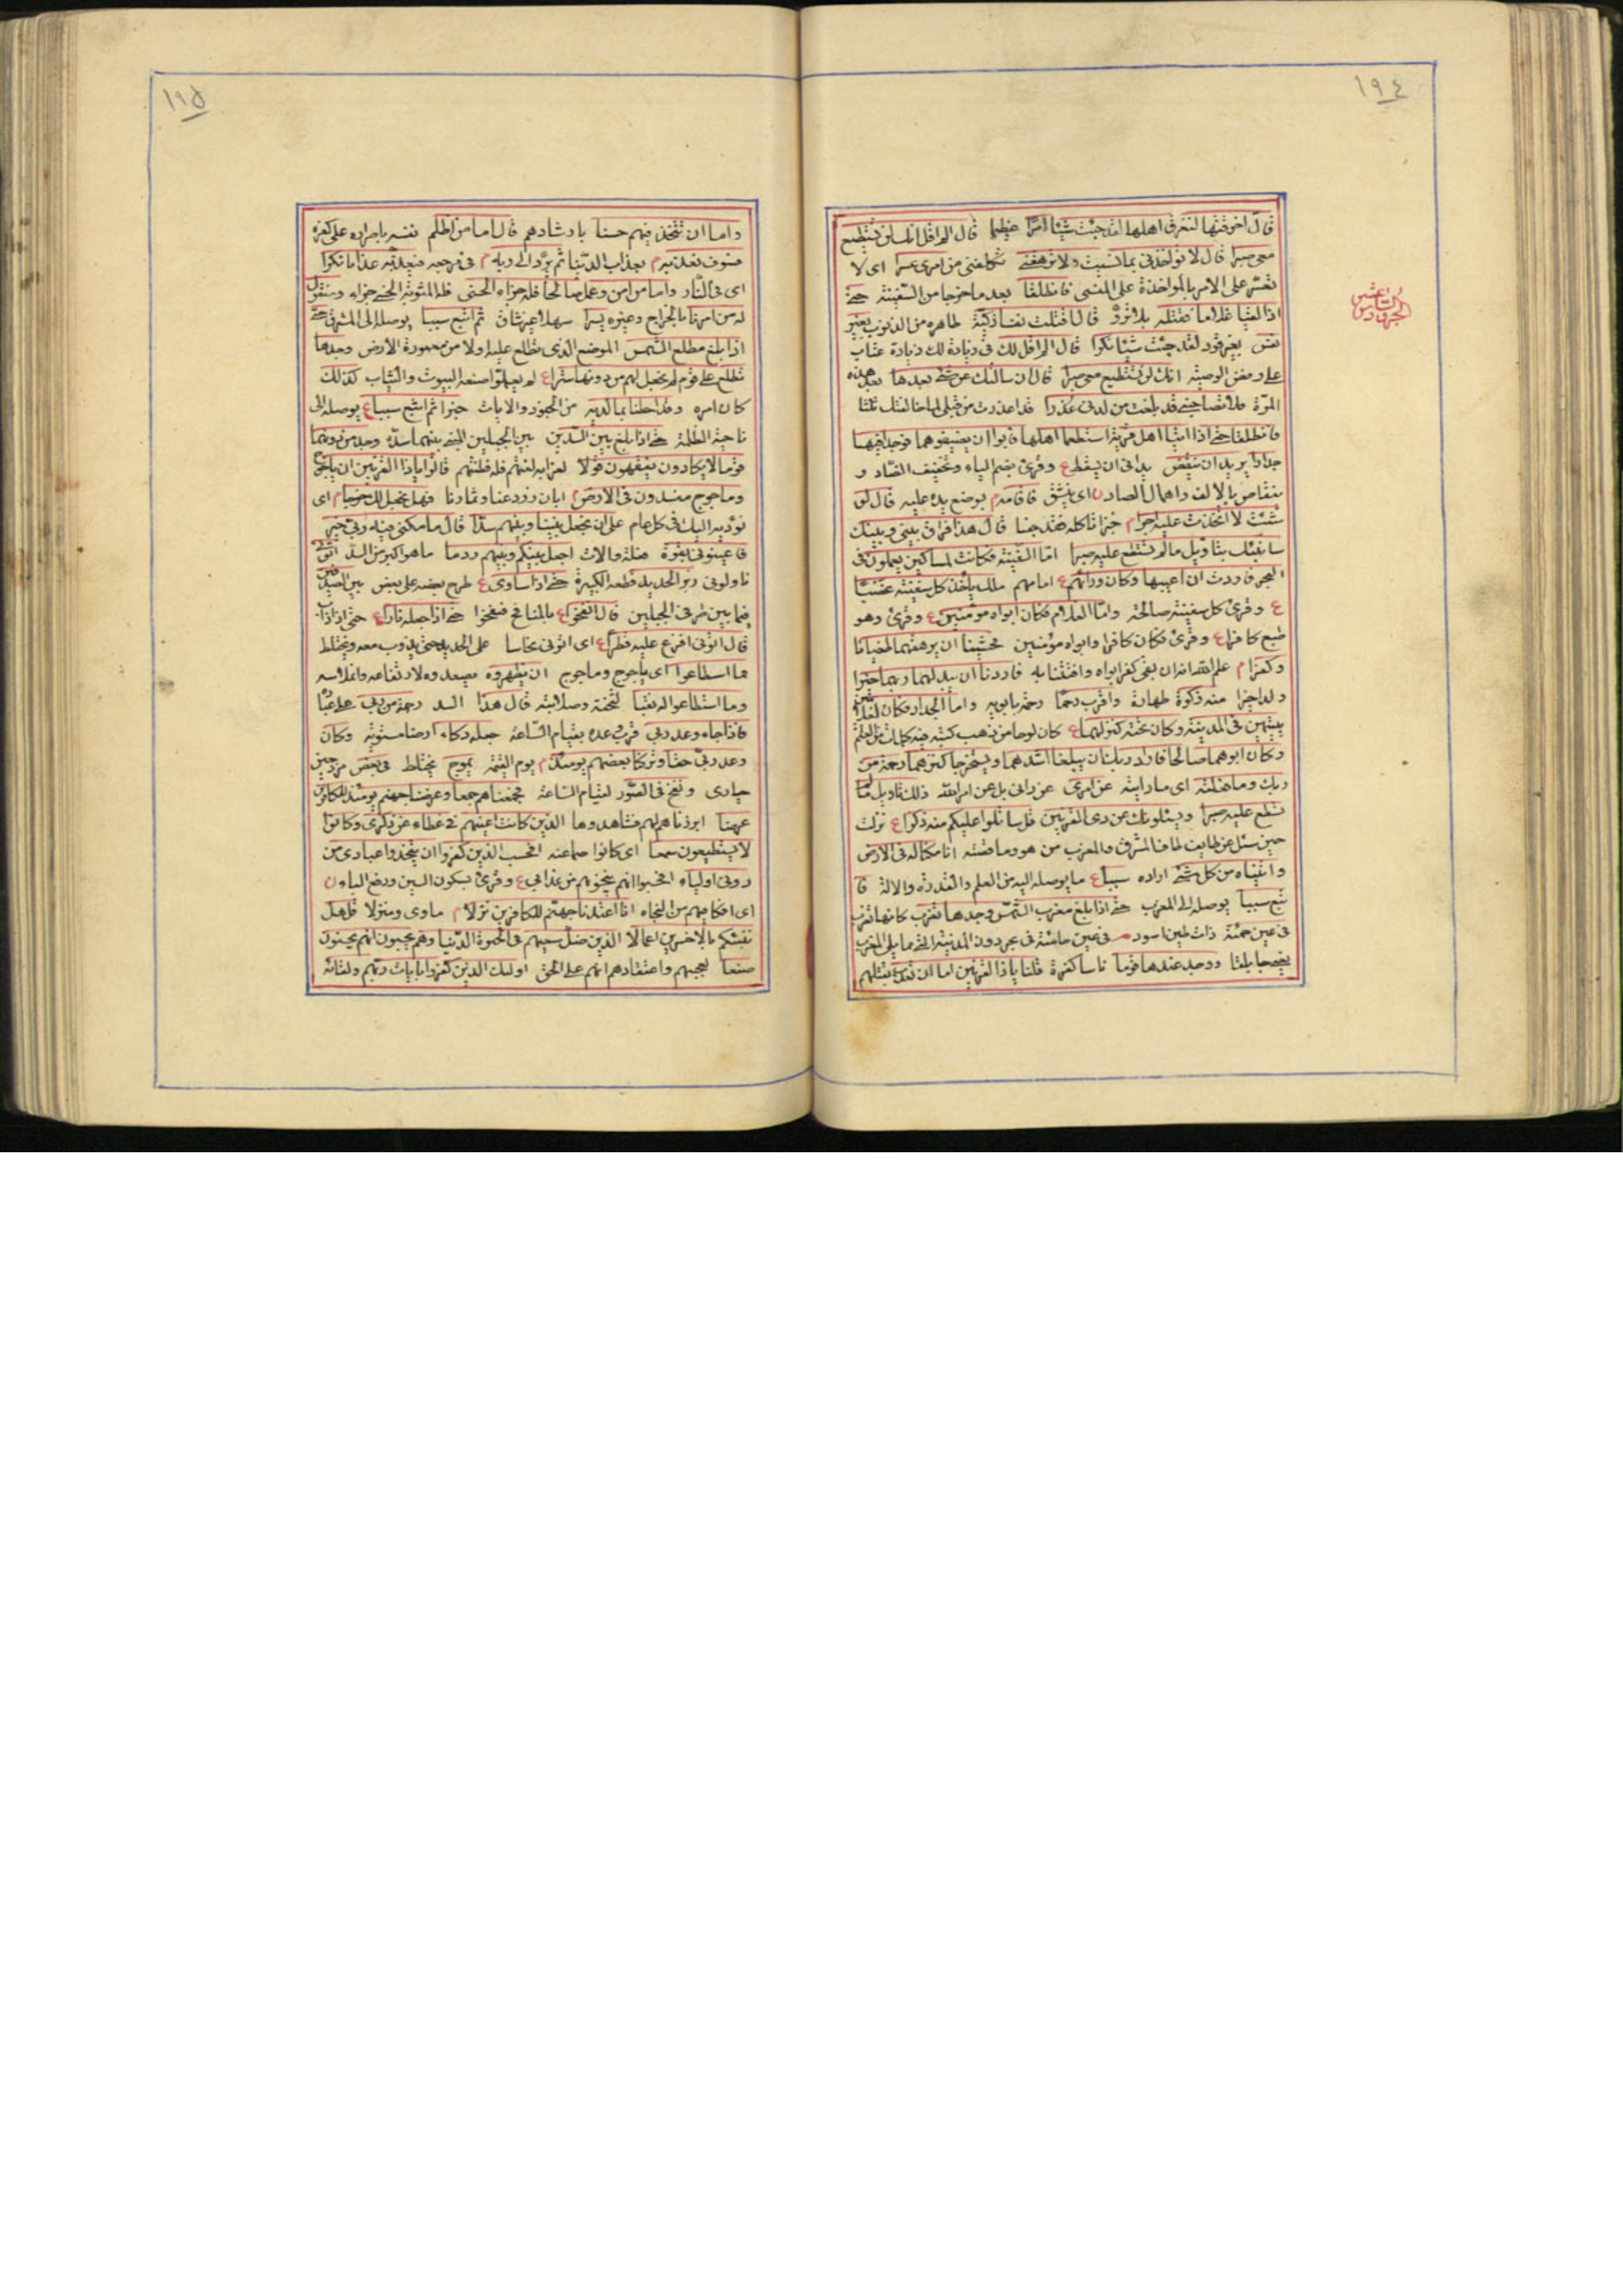 ١٩٤
قال اخرقتها لتغرق اهلها لقد جئت شيئا امرا عظيما قال الم اقل انك لن تستطيع
معى صبرا قال لا تؤاخذنى بما نسيت ولا ترهقنى تكلفنى من امرى عسرا اى لا
تعسر على الامر بالمواخذة على المنسى فانطلقا بعد ما خرجا من السفينة حتى
اذا لقيا غلاما فقتله بلا تروّ قال اقتلت نفسا زكية طاهره من الذنوب بغير
نفس بغير قود لقد جئت شيئا نكرا قال الم اقل لك فى زيادة لك زيادة عتاب
على رفض الوصية انك لن تستطيع معى صبرا قال ان سالتك عن شئ بعدها بعد هذه
المرة فلا تصاحبنى قد بلغت من لدنى عذرا قد اعذرت من قبلى لما خالفتك ثلثا
فانطلقا حتى اذا اتيا اهل قرية استطعما اهلها فابوا ان يضيفوهما فوجدا فيها
جدارا يريد ان ينقض يدانى ان يسقط ع وقرئ بضم الياء وتخفيف الضاد و
ينقاص بالالف واهمال الصاد ن اى ينشق فاقامه م بوضع يده عليه قال لو
شئت لاتخذت عليه اجرا م خبزا ناكله فقد جعنا قال هذا فراق بينى وبينك
سانبئك بتاويل ما لم تستطع عليه صبرا اما السفينة فكانت لمساكين يعملون فى
البحر فاردت ان اعيبها وكان ورائهم ع امامهم ملك ياخذ كل سفينة غصبا
ع وقرئ كل سفينة صالحة واما الغلام فكان ابواه مؤمنين ع وقرئ وهو
طبع كافرا ع وقرئ فكان كافرا وابواه مؤمنين فخشينا ان يرهقهما طغيانا
وكفرا م علم الله انه ان بقى كفر ابواه وافتتنا به فاردنا ان يبدلهما ربهما خيرا
ولدا خيرا منه زكوة طهارة واقرب رحما رحمة بابويه واما الجدار فكان لغلامين
يتيمين فى المدينة وكان تحته كنز لهما ع كان لوحا من ذهب كتبه فيه كلمات من العلم
وكان ابوهما صالحا فاراد ربك ان يبلغا اشدهما ويستخرجا كنزهما رحمة من
ربك وما فعلته اى ما رايته عن امرى عن رائى بل عن امر الله ذلك تاويل ما لم
تسطع عليه صبرا ويسئلونك عن ذى القرنين قل ساتلوا عليكم منه ذكرا ع نزلت
حين سئل عن طايف طاف المشرق والمغرب من هو وما قصته انا مكنا له فى الارض
واتيناه من كل شئ اراده سببا ع ما يوصله اليه من العلم والقدرة والالة فا
تبع سببا يوصله الى المغرب حتى اذا بلغ مغرب الشمس وجدها تغرب كانها تغرب
فى عين حمئة ذات طين اسود فى عين حامئة فى بحر دون المدينة التى مما يلى المغرب
ووجد عندها قوما ناسا كفرة قلنا ياذا القرنين اما ان تعذب بقتلهم
الجزؤ السادس عشر
١٩٥
واما ان تتخذ فيهم حسنا بارشادهم قال اما من ظلم نفسه باصراره على كفره
فسوف نعذبه م بعذاب الدنيا ثم يرد الى ربه م فى مرجعه فيعذبه عذابا نكرا
اى فى النار واما من امن وعمل صالحا فله جزاء الحسنى فله المثوبة الحسنى جزاء وسنقول
له من امرنا مالخراج وغيره يسرا سهلا غير شاق ثم اتبع سببا يوصله الى المشرق حتى
اذا بلغ مطلع الشمس الموضع الذى تطلع عليه اولا من معمورة الارض وجدها
تطلع على قوم لم نجعل لهم من دونها سترا ع لم يعلموا صنعه البيوت والثياب كذلك
كان امره وقد احطنا بما لديه من الجنود والايات خبرا ثم اتبع سببا ع يوصله الى
ناحية الظلمة حتى اذا بلغ بين السدين بين الجبلين المبنى بينهما سده وجد من دونهما
قوما لا يكادون يفقهون قولا لغرابه لغتهم قله فطنتهم قالوا ياذا القرنين ان ياجوج
وماجوج مفسدون فى الارض ايان زروعنا وثمارنا فهل نجعل لك خرجا م اى
نؤديه اليك فى كل عام على ان تجعل بيننا وبينهم سدا قال ما مكنى فيه ربى خير
فاعينونى بقوة فعلة والات اجعل بينكم وبينهم ردما ما هو اكبر من السد اتونى
ناولونى زبر الحديد قطعه الكبيرة حتى اذا ساوى ع طرح بعضه على بعض بين الصدفين
فيما بين طرفى الجبلين قال انفخوا ع بالمنافخ فنفخوا حتى اذا جعله نارا ع حتى اذا ذاب
قال اتونى افرغ عليه قطرا ع اى اتونى نحاسا على الحديد حتى يذوب معه ويختلط
فما اسطاعوا اى ياجوج وماجوج ان يظهروه بصعوده لارتفاعه وانملاسه
وما استطاعوا له نقبا لثخنه وصلابته قال هذا السد رحمة من ربى على عباده
فاذا جاء وعد ربى قرب وعده بقيام الساعة جعله دكاء ارضا مستوية وكان
وعد ربى حقا وتركنا بعضهم يومئذ م يوم القيمة يموج يختلط فى بعض مزدحمين
حيارى ونفخ فى الصور لقيام الساعة فجمعناهم جمعا وعرضنا جهنم يومئذ للكافرين
عرضا ابرزناها لهم فشاهدوها الذين كانت اعينهم فى غطاء عن ذكرى وكانوا
لا يستطيعون سمعا اى كانوا صما عنه افحسب الذين كفروا ان يتخذوا عبادى من
دونى اولياء افحسبوا انهم ينجونهم من عذابى ع وقرئ بسكون السين ورفع الباء ن
اى افكافيهم من النجاه انا اعتدنا جهنم للكافرين نزلا م ماوى ومنزلا قل هل
ننبئكم بالاخسرين اعمالا الذين ضل سعيهم فى الحيوة الدنيا وهم يحسبون انهم يحسنون
صنعا لعجبهم واعتقادهم انهم على الحق اولئك الذين كفروا بايات ربهم ولقائه